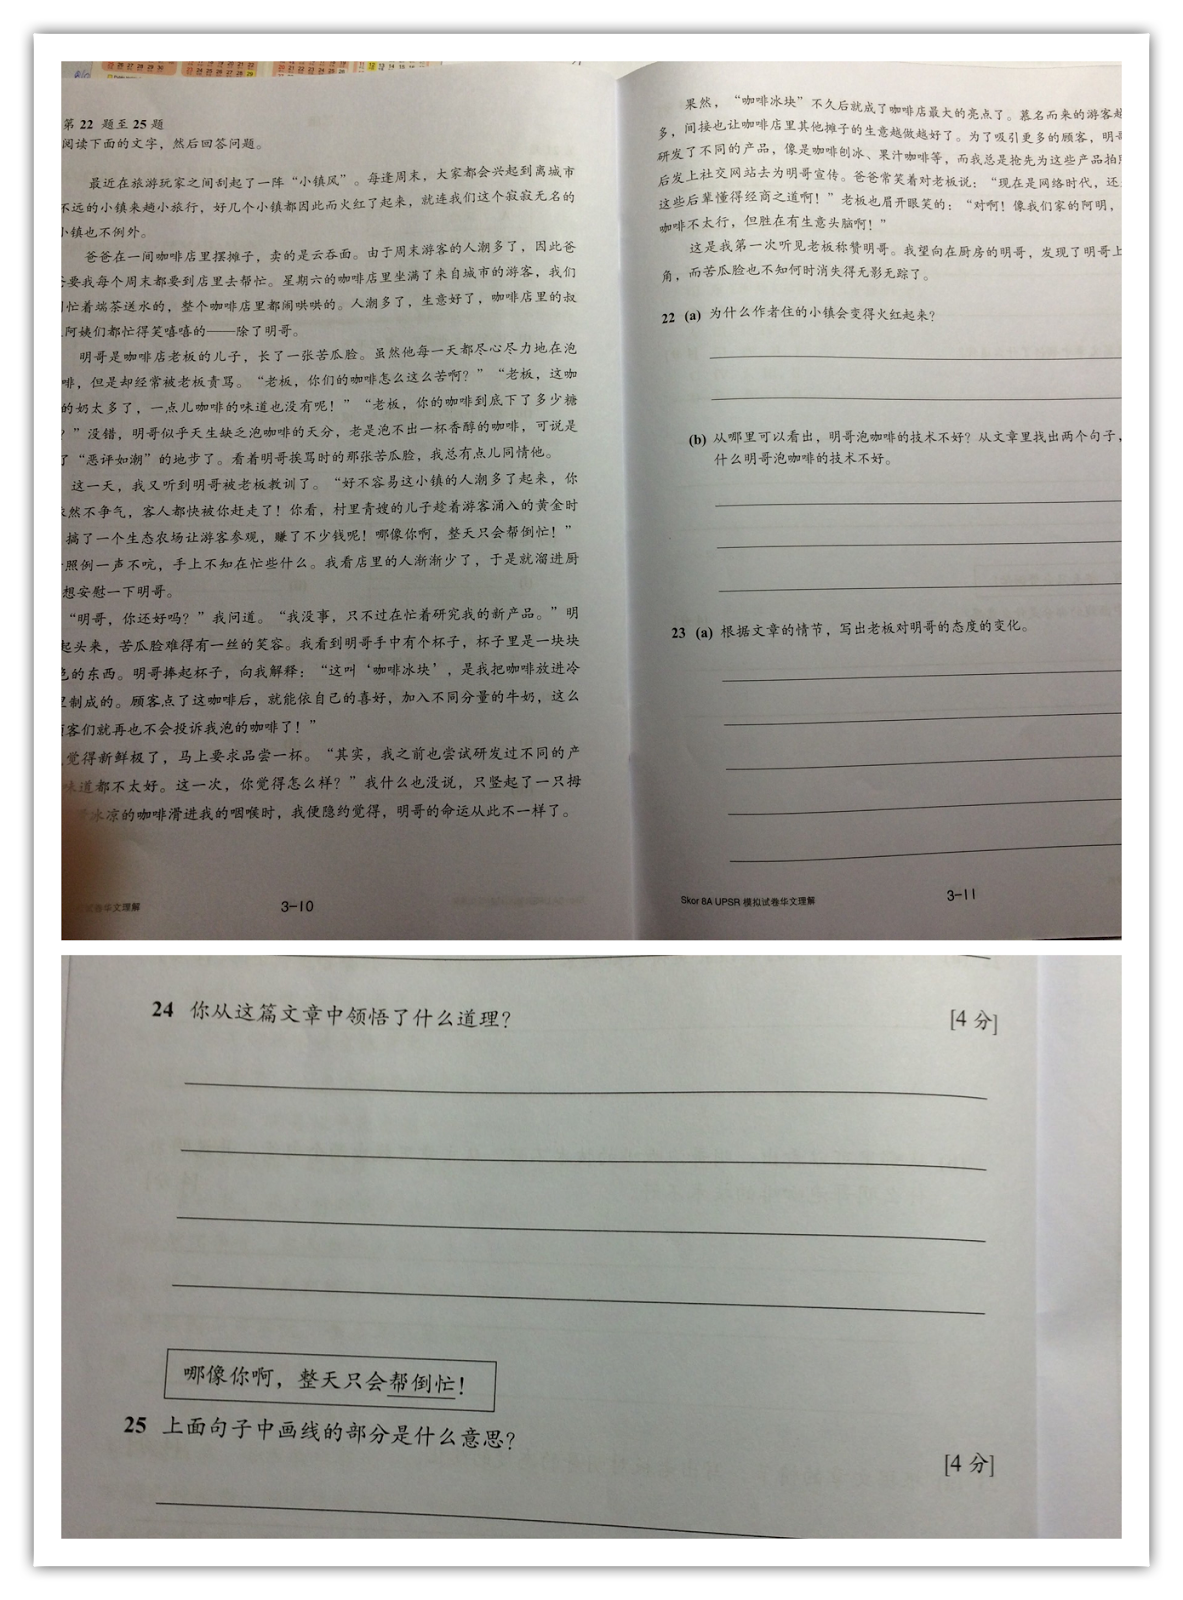 第 22 题至 25 题
阅读下面的文字，然后回答问题。
最近在旅游玩家之间刮起了一阵“小镇风”。每逢周末，大家都会兴起到离城市
不远的小镇来趟小旅行，好几个小镇都因此而火红了起来，就连我们这个寂寂无名的
小镇也不例外。
爸爸在一间咖啡店里摆摊子，卖的是云吞面。由于周末游客的人潮多了，因此爸
要我每个周末都要到店里去帮忙。星期六的咖啡店里坐满了来自城市的游客，我们
忙着端茶送水的，整个咖啡店里都闹哄哄的。人潮多了，生意好了，咖啡店里的叔
阿姨们都忙得笑嘻嘻的——除了明哥。
明哥是咖啡店老板的儿子，长了一张苦瓜脸。虽然他每一天都尽心尽力地在泡
啡，但是却经常被老板责骂。“老板，你们的咖啡怎么这么苦啊？”“老板，这咖
的奶太多了，一点儿咖啡的味道也没有呢！”“老板，你的咖啡到底下了多少糖
？”没错，明哥似乎天生缺乏泡咖啡的天分，老是泡不出一杯香醇的咖啡，可说是
了“恶评如潮”的地步了。看着明哥挨骂时的那张苦瓜脸，我总有点儿同情他。
这一天，我又听到明哥被老板教训了。“好不容易这小镇的人潮多了起来，你
依然不争气，客人都快被你赶走了！你看，村里青嫂的儿子趁着游客涌入的黄金时
搞了一个生态农场让游客参观，赚了不少钱呢！哪像你啊，整天只会帮倒忙！”
照例一声不吭，手上不知在忙些什么。我看店里的人渐渐少了，于是就溜进厨
想安慰一下明哥。
“明哥，你还好吗？”我问道。“我没事，只不过在忙着研究我的新产品。”明
起头来，苦瓜脸难得有一丝的笑容。我看到明哥手中有个杯子，杯子里是一块块
色的东西。明哥捧起杯子，向我解释：“这叫‘咖啡冰块’，是我把咖啡放进冷
里制成的。顾客点了这咖啡后，就能依自己的喜好，加入不同分量的牛奶，这么
顾客们就再也不会投诉我泡的咖啡了！”
觉得新鲜极了，马上要求品尝一杯。“其实，我之前也尝试研发过不同的产
味道都不太好。这一次，你觉得怎么样？”我什么也没说，只竖起了一只拇
冰凉的咖啡滑进我的咽喉时，我便隐约觉得，明哥的命运从此不一样了。
试卷华文理解
3-10
果然，“咖啡冰块”不久后就成了咖啡店最大的亮点了。慕名而来的游客越
多，间接也让咖啡店里其他摊子的生意越做越好了。为了吸引更多的顾客，明哥
研发了不同的产品，像是咖啡刨冰、果汁咖啡等，而我总是抢先为这些产品拍照
后发上社交网站去为明哥宣传。爸爸常笑着对老板说：“现在是网络时代，还
这些后辈懂得经商之道啊！”老板也眉开眼笑的：“对啊！像我们家的阿明，
咖啡不太行，但胜在有生意头脑啊！”
这是我第一次听见老板称赞明哥。我望向在厨房的明哥，发现了明哥上
角，而苦瓜脸也不知何时消失得无影无踪了。
22 (a) 为什么作者住的小镇会变得火红起来？
(b) 从哪里可以看出，明哥泡咖啡的技术不好？从文章里找出两个句子，
什么明哥泡咖啡的技术不好。
23 (a) 根据文章的情节，写出老板对明哥的态度的变化。
Skor 8A UPSR 模拟试卷华文理解
3-11
24 你从这篇文章中领悟了什么道理？ [4 分]
哪像你啊，整天只会帮倒忙！
25 上面句子中画线的部分是什么意思？
[4 分]